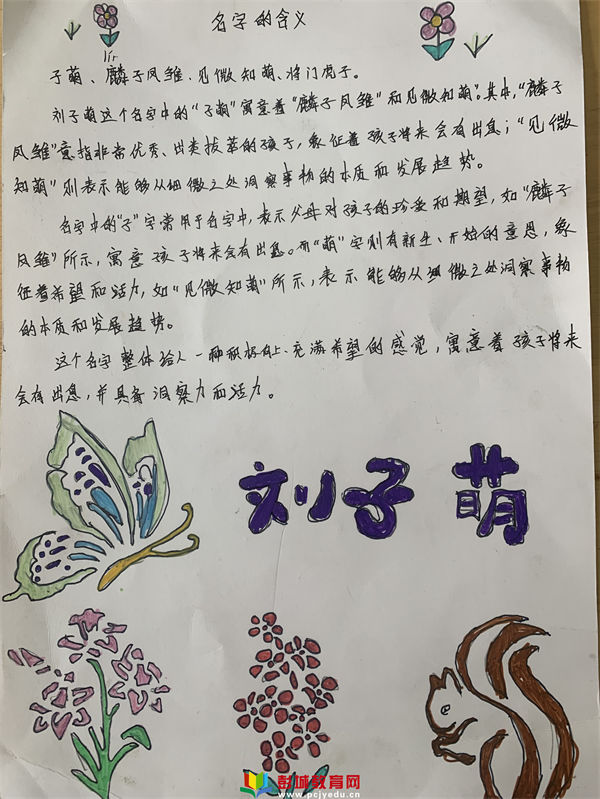 名字的含义
lín
子萌、麟子凤雏、见微知萌、将门虎子。
刘子萌这个名字中的“子萌”寓意着“麟子凤雏”和见微知萌”。其中，“麟子
凤雏”意指非常优秀、出类拔萃的孩子，象征着孩子将来会有出息；“见微
知萌”则表示能够从细微之处洞察事物的本质和发展趋势。
名字中的“子”字常用于名字中，表示父母对孩子的珍爱和期望，如“麟子
凤雏”所示，寓意孩子将来会有出息。而“萌”字则有新生、开始的意思，象
征着希望和活力，如“见微知萌”所示，表示能够从细微之处洞察事物
的本质和发展趋势。
这个名字整体给人一种积极向上、充满希望的感觉，寓意着孩子将来
会有出息，并具备洞察力和活力。
刘子萌
彭城教育网
www.pcjyedu.cn